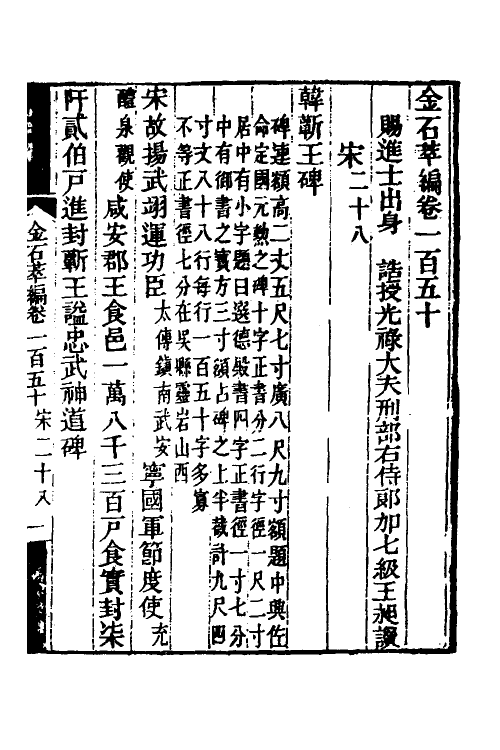 金石萃編卷一百五十
賜進士出身 誥授光祿大夫刑部右侍郎加七級王昶譔
宋二十八
韓蘄王碑
碑連額高二丈五尺七寸廣八尺九寸額題中興佐
命定國元勲之碑十字正書分二行字徑一尺二寸
居中有小字題曰選德殿書四字正書徑一寸七分
中有御書之寶方三寸額占碑之上半截計九尺四
寸文八十八行每行一百五十字多寡
不等正書徑七分在吳縣靈岩山西
宋故揚武翊運功臣 太傅鎮南武安 寧國軍節度使 充
醴泉觀使 咸安郡王食邑一萬八千三百戸食實封柒
阡貳伯戸進封蘄王謚忠武神道碑
金石萃編卷一百五十 宋二十八 一